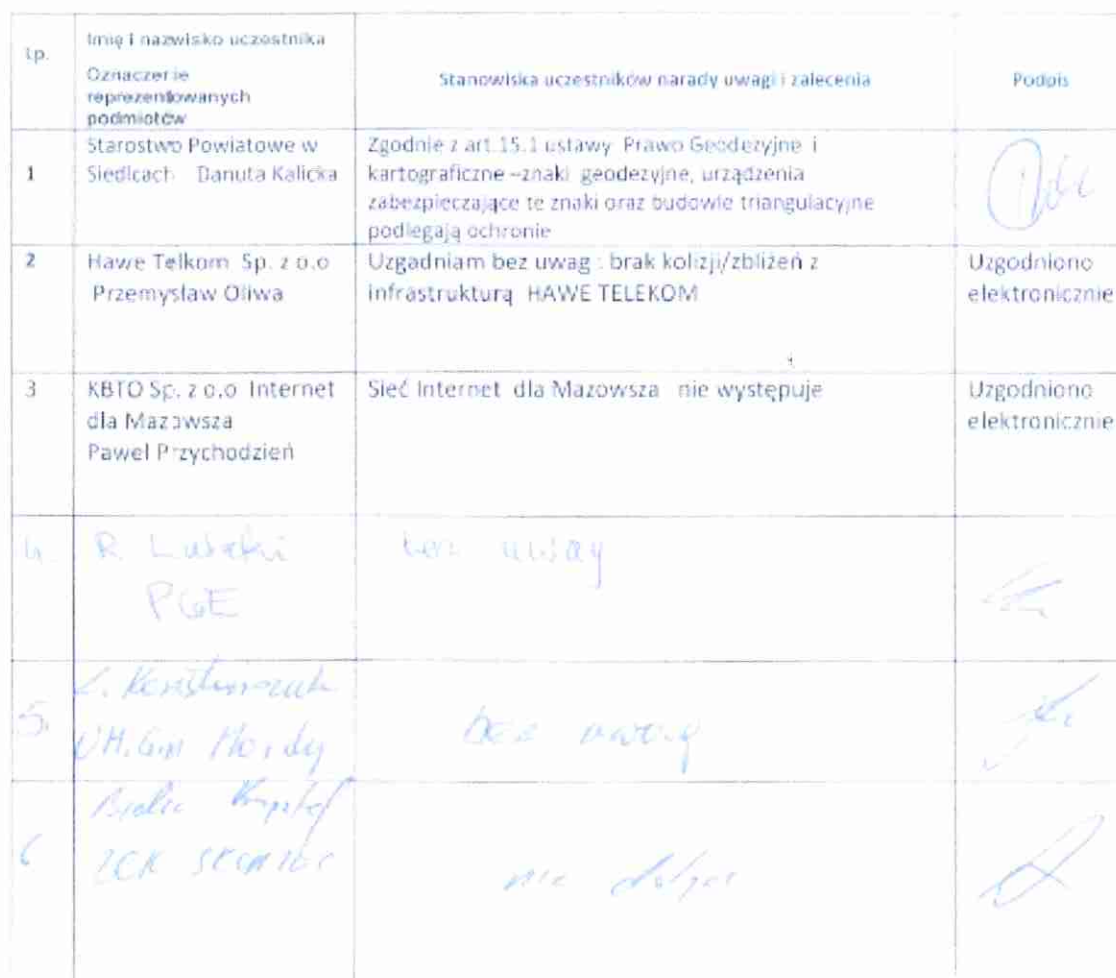 Lp.
Imię i nazwisko uczestnika
Oznaczenie
reprezentowanych
podmiotów
Stanowiska uczestników narady uwagi i zalecenia
Podpis
1
Starostwo Powiatowe w
Siedlcach Danuta Kalicka
Zgodnie z art.15.1 ustawy Prawo Geodezyjne i
kartograficzne –znaki geodezyjne, urządzenia
zabezpieczające te znaki oraz budowle triangulacyjne
podlegają ochronie
2
Hawe Telkom Sp. z o.o
Przemysław Oliwa
Uzgadniam bez uwag : brak kolizji/zbliżeń z
infrastrukturą HAWE TELEKOM
Uzgodniono
elektronicznie
3
KBTO Sp. z o.o Internet
dla Mazowsza
Paweł Przychodzień
Sieć Internet dla Mazowsza nie występuje
Uzgodniono
elektronicznie
4.
R.
PGE
bez uwag
5.
UM.Gm Mordy
bez uwag
6
nie dotyczy